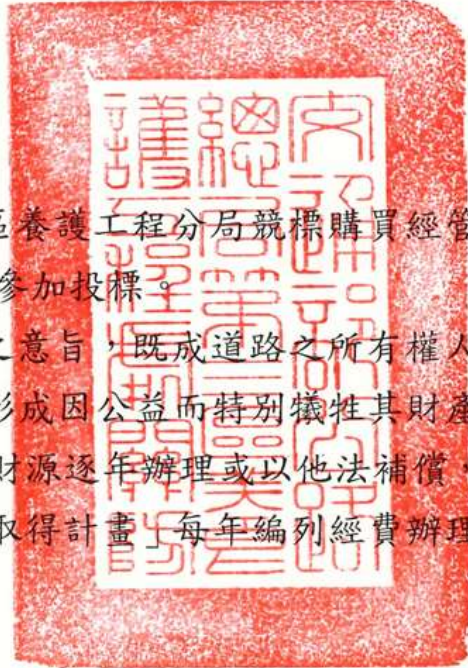 區養護工程分局競標購買經管
參加投標。
之意旨，既成道路之所有權人
形成因公益而特別犧牲其財產
財源逐年辦理或以他法補償，
取得計畫」每年編列經費辦理
交通部公路
總局第區養
護工程處關防